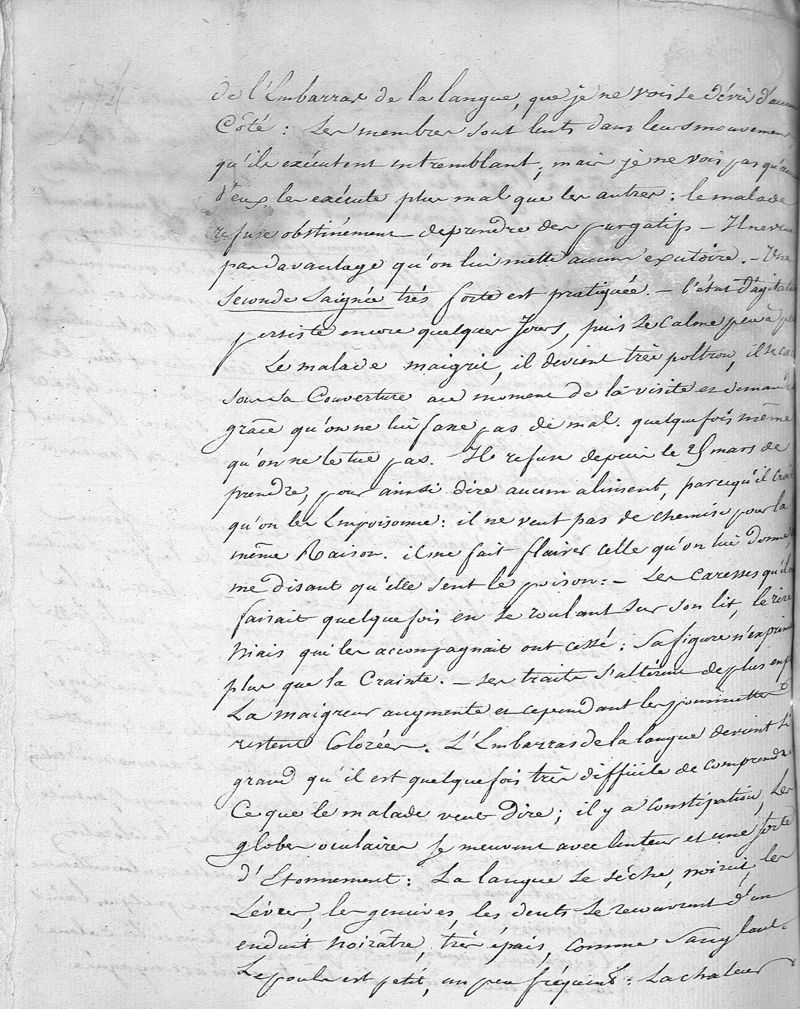 de l'Embarras de la langue, que je ne vois se dévier d'aucun
Côté : Les membres sont lents dans leurs mouvemens
qu'ils exécutent en tremblant, mais je ne vois pas qu'
d'eux les exécute plus mal que les autres : le malade
refuse obstinément de prendre des purgatifs – Il ne veut
pas davantage qu'on lui mette aucun exutoire. – Une
Seconde Saignée très forte est pratiquée. – l'état d'agitation
persiste encore quelques Jours, puis se calme peu à peu
Le malade maigrit, il devient très poltron, il se cache
sous sa Couverture au moment de la visite et demande
grâce qu'on ne lui fasse pas de mal. quelquefois même
qu'on ne le tue pas. Il refuse depuis le 25 mars de
prendre, pour ainsi dire aucun aliment, parcequ'il croit
qu'on les Empoisonne : il ne veut pas de chemise pour la
même Raison. il me fait flairer celle qu'on lui donne,
me disant qu'elle sent le poison : – Les Caresses qu'il
faisait quelquefois en se roulant sur son lit, le rire
Niais qui les accompagnait ont cessé : Sa figure n'exprime
plus que la Crainte. – Ses traits s'altèrent de plus en plus
La maigreur augmente et cependant les pommettes
restent Colorées. L'Embarras de la langue devient si
grand qu'il est quelquefois très difficile de comprendre
Ce que le malade veut dire ; il y a Constipation, Les
globes oculaires se meuvent avec lenteur et une sorte
d'Etonnement : La langue se sèche, noircit, les
Lèvres, les gencives, les dents se recouvrent d'un
enduit noirâtre, très épais, comme Sanglant.
Le pouls est petit, un peu fréquent : La chaleur